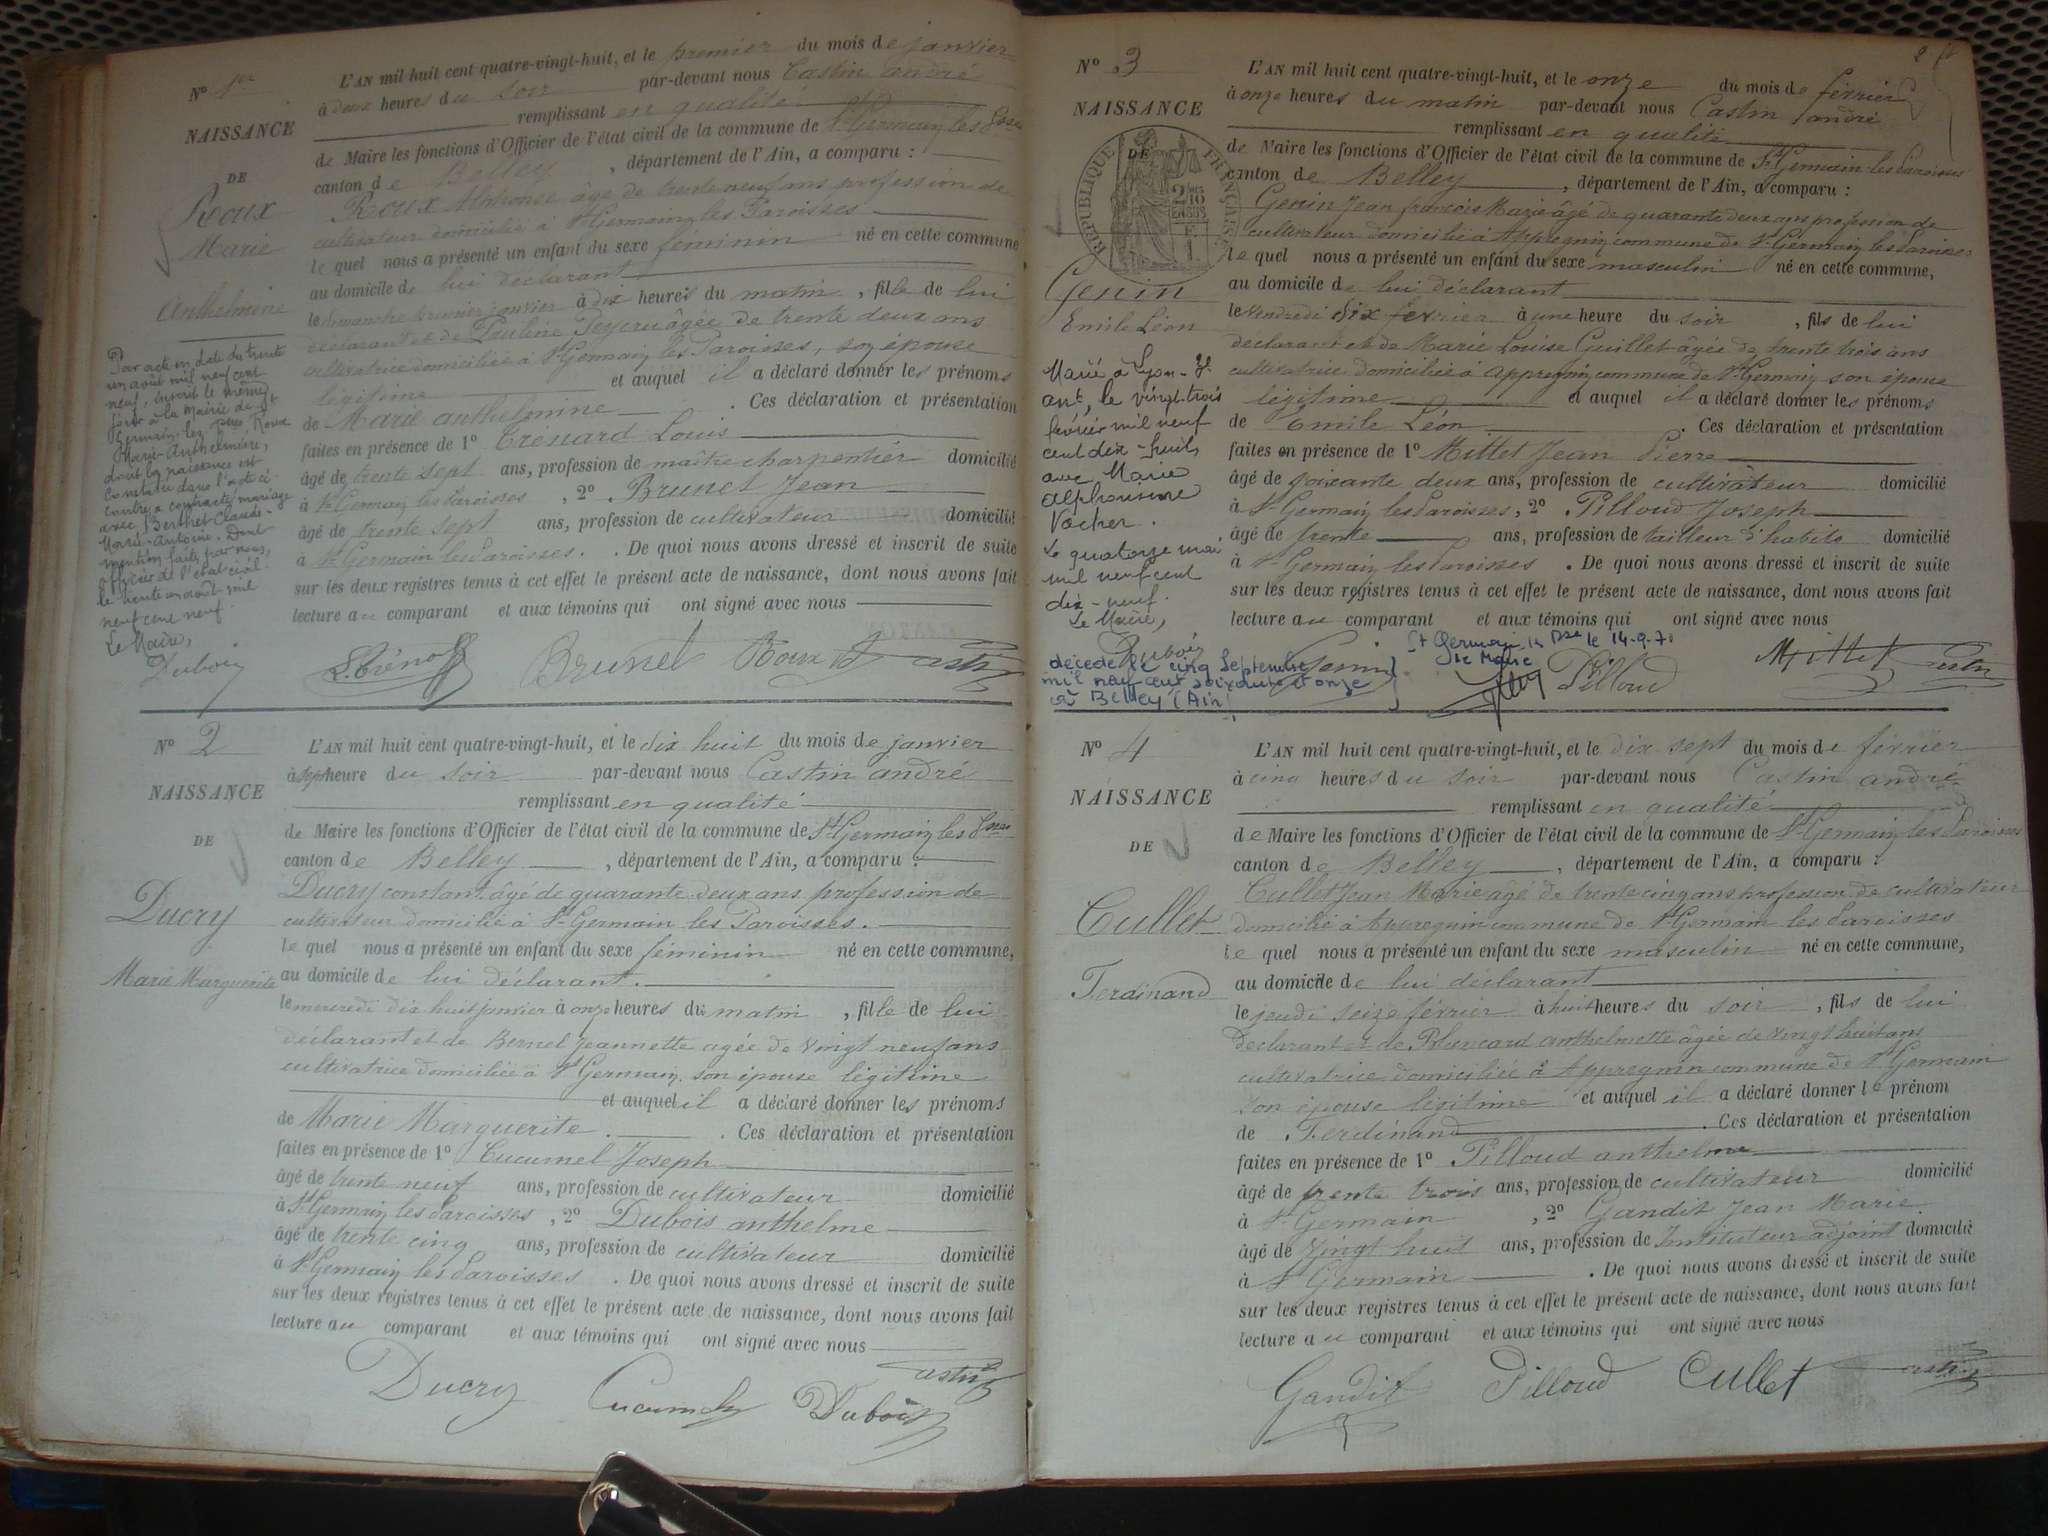 Nº 1er
NAISSANCE
DE
Roux
Marie
Anthelmine
L'AN mil huit cent quatre-vingt-huit, et le premier du mois de janvier
à deux heures du soir par-devant nous Castin andré
remplissant en qualité
de Maire les fonctions d'Officier de l'état civil de la commune de St Germain les Pses
canton de Belley, département de l'Ain, a comparu :
Roux Alphonse âgé de trente neuf ans profession de
cultivateur domicilié à St Germain les Paroisses
le quel nous a présenté un enfant du sexe féminin né en cette commune
au domicile de lui déclarant
le dimanche premier janvier à dix heures du matin, fille de lui
déclarant et de Pauline âgée de trente deux ans
cultivatrice domiciliée à St Germain les Paroisses, son épouse
légitime et auquel il a déclaré donner les prénoms
de Marie anthelmine. Ces déclaration et présentation
faites en présence de 1º Trénard Louis
âgé de trente sept ans, profession de maître charpentier domicilié
à St Germain les Paroisses, 2º Brunet Jean
âgé de trente sept ans, profession de cultivateur domicilié
à St Germain les Paroisses. De quoi nous avons dressé et inscrit de suite
sur les deux registres tenus à cet effet le présent acte de naissance, dont nous avons fait
lecture au comparant et aux témoins qui ont signé avec nous
Par acte en date du trente
un août mil neuf cent
neuf, inscrit le même
jour à la Mairie de St
Germain-les-Pses Roux
Marie-Anthelmine,
dont la naissance est
constatée dans l'acte ci-
contre a contracté mariage
avec Berthet Claude-
Marie-Antoine. Dont
mention faite par nous,
officier de l'état civil
le trente un août mil
neuf cent neuf.
Le Maire,
Dubois
L. Trénard Brunet Roux A Castin
Nº 2
NAISSANCE
DE
Ducry
Marie Marguerite
L'AN mil huit cent quatre-vingt-huit, et le dix huit du mois de janvier
à sept heure du soir par-devant nous Castin andré
remplissant en qualité
de Maire les fonctions d'Officier de l'état civil de la commune de St Germain les Pses
canton de Belley, département de l'Ain, a comparu :
Ducry constant âgé de quarante deux ans profession de
cultivateur domicilié à St Germain les Paroisses.
le quel nous a présenté un enfant du sexe féminin né en cette commune,
au domicile de lui déclarant.
le mercredi dix huit janvier à onze heures du matin, fille de lui
déclarant et de Bernel Jeannette agée de vingt neuf ans
cultivatrice domiciliée à St Germain son épouse légitime
et auquel il a déclaré donner les prénoms
de Marie Marguerite. Ces déclaration et présentation
faites en présence de 1º Cucumel Joseph
âgé de trente neuf ans, profession de cultivateur domicilié
à St Germain les Paroisses, 2º Dubois anthelme
âgé de trente cinq ans, profession de cultivateur domicilié
à St Germain les Paroisses. De quoi nous avons dressé et inscrit de suite
sur les deux registres tenus à cet effet le présent acte de naissance, dont nous avons fait
lecture au comparant et aux témoins qui ont signé avec nous
Ducry Cucumel Dubois Castin
2
Nº 3
NAISSANCE
DE
RÉPUBLIQUE FRANÇAISE
2 10
EN SUS
Genin
Emile Léon
L'AN mil huit cent quatre-vingt-huit, et le onze du mois de février
à onze heures du matin par-devant nous Castin andré
remplissant en qualité
de Maire les fonctions d'Officier de l'état civil de la commune de St Germain les Paroisses
canton de Belley, département de l'Ain, a comparu :
Genin Jean françois Marie âgé de quarante deux ans profession de
cultivateur domicilié à Appregnin commune de St Germain les Paroisses
le quel nous a présenté un enfant du sexe masculin né en cette commune,
au domicile de lui déclarant
le vendredi dix février à une heure du soir, fils de lui
déclarant et de Marie Louise Guillet âgée de trente trois ans
cultivatrice domiciliée à Appregnin commune de St Germain son épouse
légitime et auquel il a déclaré donner les prénoms
de Emile Léon. Ces déclaration et présentation
faites en présence de 1º Millet Jean Pierre
âgé de soixante deux ans, profession de cultivateur domicilié
à St Germain les Paroisses, 2º Pilloud Joseph
âgé de trente ans, profession de tailleur d'habits domicilié
à St Germain les Paroisses. De quoi nous avons dressé et inscrit de suite
sur les deux registres tenus à cet effet le présent acte de naissance, dont nous avons fait
lecture au comparant et aux témoins qui ont signé avec nous
Marié à Lyon - 3e
art, le vingt-trois
février mil neuf
cent dix-huit,
avec Marie
Alphonsine
Vacher.
Le quatorze mai
mil neuf cent
dix-neuf.
Le Maire,
Dubois
décédé le cinq Septembre
mil neuf cent soixante et onze
à Belley (Ain)
St Germain les Pses le 14-9-71
Le Maire
Genin Pilloud Millet Castin
Nº 4
NAISSANCE
DE
Cullet
Ferdinand
L'AN mil huit cent quatre-vingt-huit, et le dix sept du mois de février
à cinq heures du soir par-devant nous Castin andré
remplissant en qualité
de Maire les fonctions d'Officier de l'état civil de la commune de St Germain les Paroisses
canton de Belley, département de l'Ain, a comparu :
Cullet Jean Marie âgé de trente cinq ans profession de cultivateur
domicilié à Appregnin commune de St Germain les Paroisses
le quel nous a présenté un enfant du sexe masculin né en cette commune,
au domicile de lui déclarant
le jeudi seize février à huit heures du soir, fils de lui
déclarant et de anthelmette âgée de vingt huit ans
cultivatrice domiciliée à Appregnin commune de St Germain
son épouse légitime et auquel il a déclaré donner le prénom
de Ferdinand. Ces déclaration et présentation
faites en présence de 1º Pilloud anthelme
âgé de trente trois ans, profession de cultivateur domicilié
à St Germain, 2º Gandit Jean Marie
âgé de vingt huit ans, profession de Instituteur adjoint domicilié
à St Germain. De quoi nous avons dressé et inscrit de suite
sur les deux registres tenus à cet effet le présent acte de naissance, dont nous avons fait
lecture au comparant et aux témoins qui ont signé avec nous
Gandit Pilloud Cullet Castin